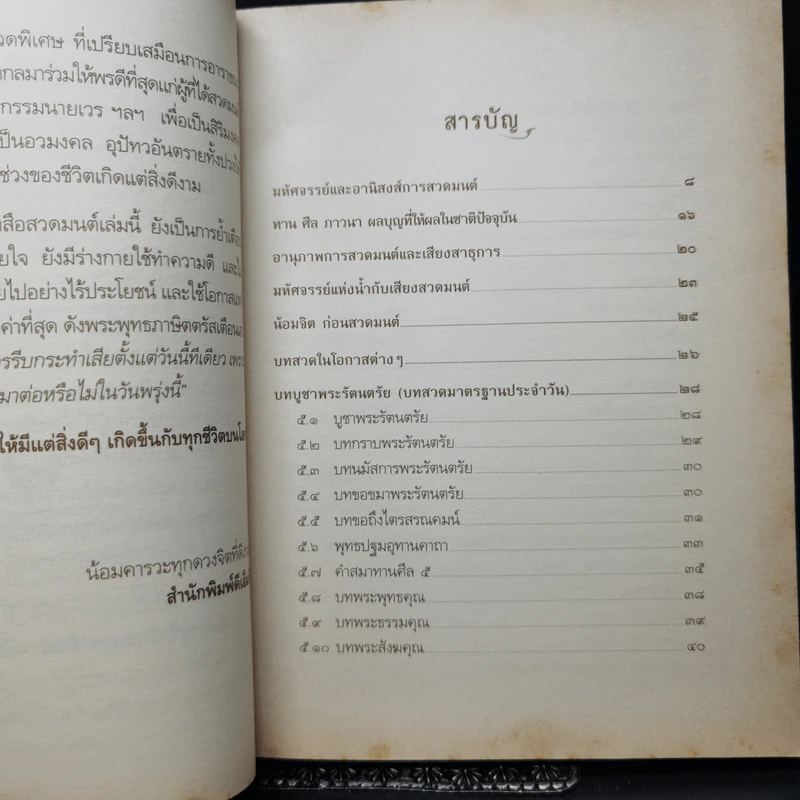 วดพิเศษ ที่เปรียบเสมือนการอาราธนา
ากลมาร่วมให้พรดีที่สุดแก่ผู้ที่ได้สวดมนต์
กรรมนายเวร ฯลฯ เพื่อเป็นสิริมงคล
ป็นอวมงคล อุปัทวอันตรายทั้งปวงให้
ช่วงของชีวิตเกิดแต่สิ่งดีงาม
สือสวดมนต์เล่มนี้ ยังเป็นการย้ำเตือน
ายใจ ยังมีร่างกายใช้ทำความดี และไม่
ยไปอย่างไร้ประโยชน์ และใช้โอกาส
ค่าที่สุด ดังพระพุทธภาษิตตรัสเตือน
รรีบกระทำเสียตั้งแต่วันนี้ทีเดียว เพราะ
มาต่อหรือไม่ในวันพรุ่งนี้"
ให้มีแต่สิ่งดีๆ เกิดขึ้นกับทุกชีวิตบนโลก
น้อมคารวะทุกดวงจิตที่ดีงาม
สำนักพิมพ์
สารบัญ
มหัศจรรย์และอานิสงส์การสวดมนต์ ๘
ทาน ศีล ภาวนา ผลบุญที่ให้ผลในชาติปัจจุบัน ๑๖
อานุภาพการสวดมนต์และเสียงสาธุการ ๒๐
มหัศจรรย์แห่งน้ำกับเสียงสวดมนต์ ๒๓
น้อมจิต ก่อนสวดมนต์ ๒๕
บทสวดในโอกาสต่างๆ ๒๖
บทบูชาพระรัตนตรัย (บทสวดมาตรฐานประจำวัน) ๒๘
๕.๑ บูชาพระรัตนตรัย ๒๘
๕.๒ บทกราบพระรัตนตรัย ๒๙
๕.๓ บทนมัสการพระรัตนตรัย ๓๐
๕.๔ บทขอขมาพระรัตนตรัย ๓๐
๕.๕ บทขอถึงไตรสรณคมน์ ๓๑
๕.๖ พุทธปฐมอุทานคาถา ๓๓
๕.๗ คำสมาทานศีล ๕ ๓๕
๕.๘ บทพระพุทธคุณ ๓๘
๕.๙ บทพระธรรมคุณ ๓๙
๕.๑๐ บทพระสังฆคุณ ๔๐